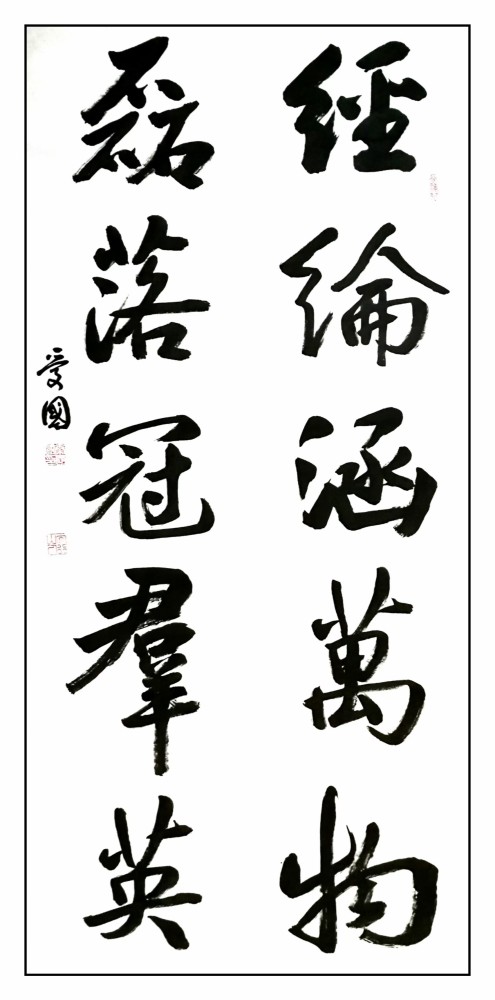 經綸涵萬物
磊落冠羣英
爱國